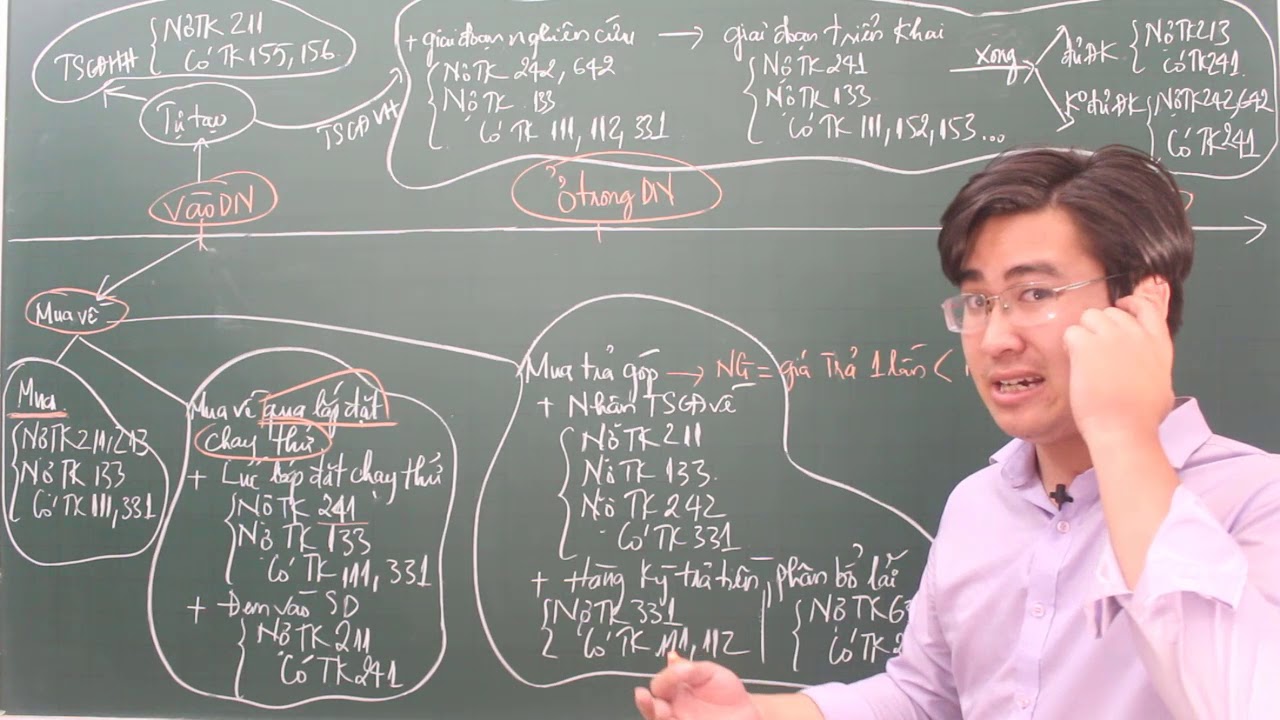 TSCĐHH
Nợ TK 211
Có TK 155, 156
Tự tạo
TSCĐ VH
+ giai đoạn nghiên cứu → giai đoạn triển khai
Nợ TK 242, 642
Nợ TK 133
Có TK 111, 112, 331
Nợ TK 241
Nợ TK 133
Có TK 111, 152, 153...
xong
đủ ĐK
Nợ TK 213
Có TK 241
Ko đủ ĐK
Nợ TK 242, 642
Có TK 241
Vào DN
Ở trong DN
Mua về
Mua
Nợ TK 211, 213
Nợ TK 133
Có TK 111, 331
Mua về qua lắp đặt
chạy thử
+ Lúc lắp đặt chạy thử
Nợ TK 241
Nợ TK 133
Có TK 111, 331
+ Đem vào SD
Nợ TK 211
Có TK 241
Mua trả góp → NG = giá trả 1 lần (
+ Nhận TSCĐ về
Nợ TK 211
Nợ TK 133.
Nợ TK 242
Có TK 331
+ Hàng kỳ trả tiền, phân bổ lãi
Nợ TK 331
Có TK 111, 112
Nợ TK 6
Có TK 2